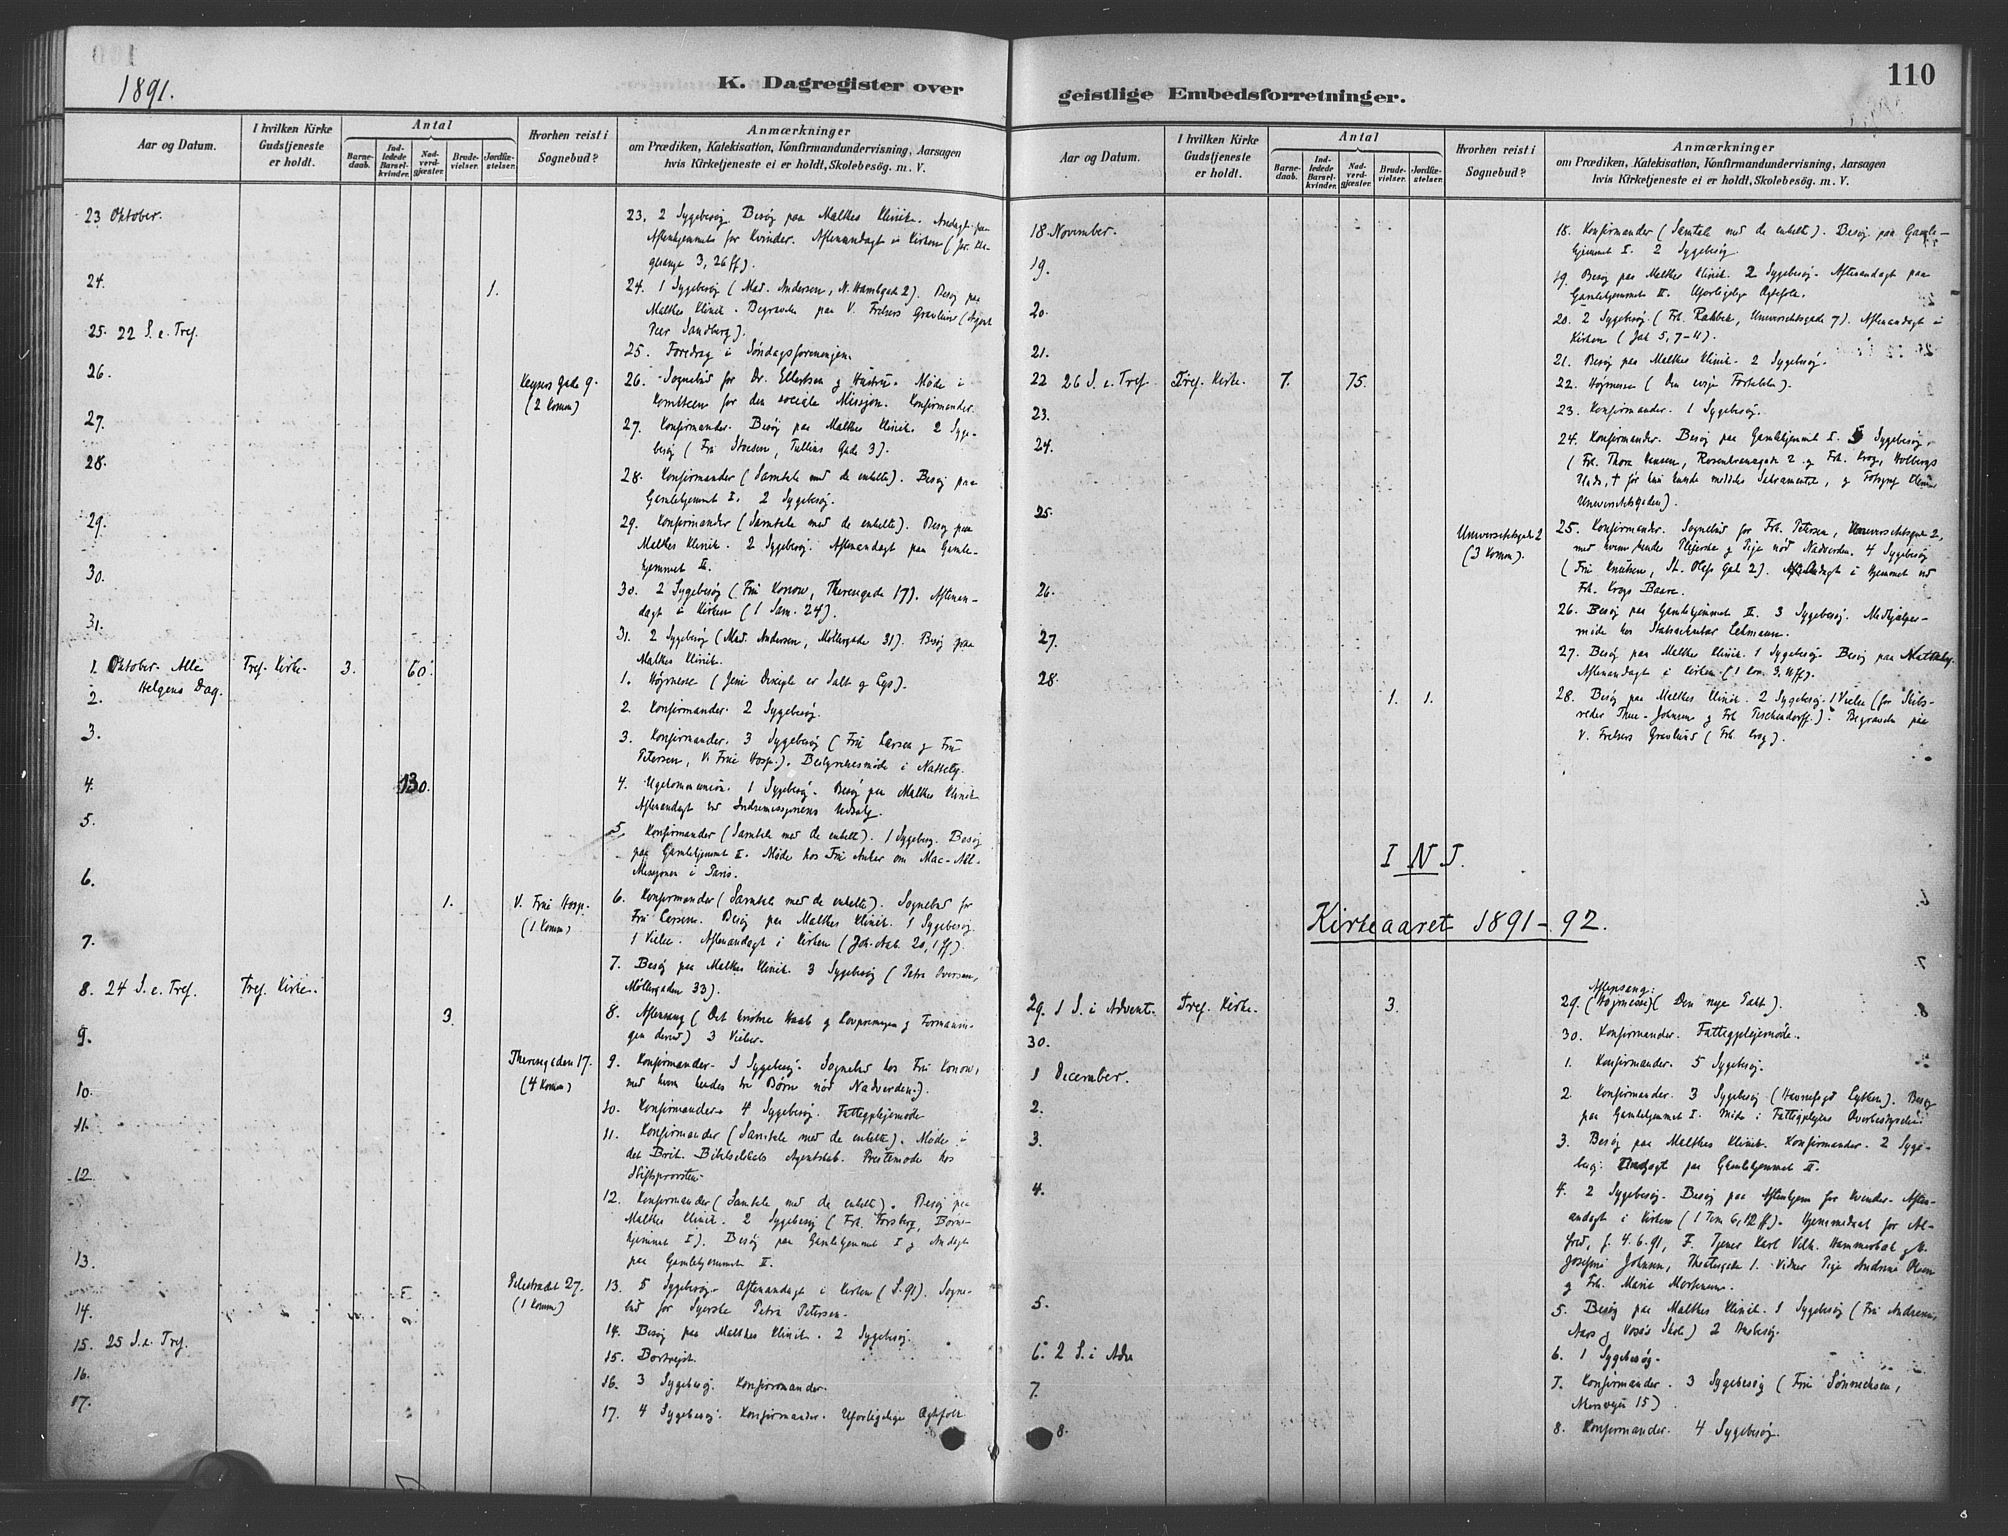 1891.
K. Dagregister over
Aar og Datum.
I hvilken Kirke Gudstjeneste er holdt.
Antal
Barnedaab.
Indledede Barselkvinder.
Nadverdgjæster.
Brudevielser.
Jordfæstelser.
Hvorhen reist i Sognebud?
Anmærkninger
om Prædiken, Katekisation, Konfirmandundervisning, Aarsagen
hvis Kirketjeneste ei er holdt, Skolebesøg. m. V.
23 Oktober.
23, 2 Sygebesøg. Besøg paa Malthes Klinik. Andagt paa
Aftenhjemmet for Kvinder. Aftenandagt i Kirken (Jer. Kla-
gesange 3, 26 ff).
24. 1.
24. 1 Sygebesøg (Mad. Andersen, N. 2). Besøg paa
Malthes Klinik. Begravelse paa V. Frelsers Gravlund (
Peer Sandberg).
25. 22 S. e. Tref.
25. Foredrag i Søndagsforeningen.
26. Keysers Gade 9. (2 Komm)
26. Sognebud for Dr. Ellertsen og Hustru. Møde i
Komiteen for den sociale Mission. Konfirmander.
27.
27. Konfirmander. Besøg paa Malthes Klinik. 2 Syge-
besøg (Fru, Tullins Gade 3).
28.
28. Konfirmander (Samtale med de enkelte). Besøg paa
Gamlehjemmet I. 2 Sygebesøg.
29.
29. Konfirmander (Samtale med de enkelte). Besøg paa
Malthes Klinik. 2 Sygebesøg. Aftenandagt paa Gamle-
hjemmet II.
30.
30. 2 Sygebesøg (Fru Konow, Theresegade 17). Aftenan-
dagt i Kirken (1 Sam. 24).
31.
31. 2 Sygebesøg (Mad. Andersen, Møllergade 31). Besøg paa
Malthes Klinik.
1. Oktober. Alle Helgens Dag. Tref. Kirke. 3. 60.
1. Højmesse (Jesu Disciple er Salt og Lys).
2.
2. Konfirmander. 2 Sygebesøg.
3.
3. Konfirmander. 3 Sygebesøg (Fru Larsen og Fru
Petersen, V. Frue Hosp.). Bestyrelsesmøde i
4. 130.
4. Ugekommunion. 1 Sygebesøg. Besøg paa Malthes Klinik.
Aftenandagt ved Indremissionens Udsalg.
5.
5. Konfirmander (Samtale med de enkelte). 1 Sygebesøg. Besøg
paa Gamlehjemmet II. Møde hos Fru Anker om Mac-All-
Missionen i Paris.
6. 1. V. Frue Hosp. (1 Komm)
6. Konfirmander (Samtale med de enkelte). Sognebud for
Fru Larsen. Besøg paa Malthes Klinik. 1 Sygebesøg.
1 Vielse. Aftenandagt i Kirken (Joh. Aab. 20, 1 ff).
7.
7. Besøg paa Malthes Klinik. 3 Sygebesøg (Petra Oversen,
Møllergaden 33).
8. 24 S. e. Tref. Tref. Kirke. 3.
8. Aftensang (Det kristne Haab og Lovprisningen og Formanin-
gen derved) 3 Vielser.
9. Theresegaden 17. (4 Komm)
9. Konfirmander. Sygebesøg. Sognebud hos Fru Konow,
med hvem hendes tre Børn nød Nadverden.).
10.
10. Konfirmander. 4 Sygebesøg. Fattigplejemøde
11.
11. Konfirmander (Samtale med de enkelte). Møde i
det Brit. Bibelselskabs Agentskab. Prestemøde hos
Stiftsprovsten.
12.
12. Konfirmander (Samtale med de enkelte). Besøg paa
Malthes Klinik. 2 Sygebesøg (Frk. Forsberg, Børne-
hjemmet I). Besøg paa Gamlehjemmet I og Andagt
paa Gamlehjemmet II.
13. Pilestrædet 27. (1 Komm)
13. 5 Sygebesøg. Aftenandagt i Kirken (S. 91). Sogne-
bud for Syerske Petra Petersen.
14.
14. Besøg paa Malthes Klinik. 2 Sygebesøg.
15. 25 S. e. Tref.
15. Bortrejst.
16.
16. 3 Sygebesøg. Konfirmander.
17.
17. 4 Sygebesøg. Konfirmander. Uforligelige Ægtefolk.
110
geistlige Embedsforretninger.
Aar og Datum.
I hvilken Kirke Gudstjeneste er holdt.
Antal
Barnedaab.
Indledede Barselkvinder.
Nadverdgjæster.
Brudevielser.
Jordfæstelser.
Hvorhen reist i Sognebud?
Anmærkninger
om Prædiken, Katekisation, Konfirmandundervisning, Aarsagen
hvis Kirketjeneste ei er holdt, Skolebesøg. m. V.
18. November.
18. Konfirmander (Samtale med de enkelte). Besøg paa Gamle-
hjemmet I. 2 Sygebesøg.
19.
19. Besøg paa Malthes Klinik. 2 Sygebesøg. Aftenandagt paa
Gamlehjemmet II. Uforligelige Ægtefolk.
20.
20. 2 Sygebesøg (Frk. Rahbek, Universitetsgade 7). Aftenandagt i
Kirken (Jak 5, 7-11).
21.
21. Besøg paa Malthes Klinik. 2 Sygebesøg.
22 26 S. e. Tref. Tref. Kirke. 7. 75.
22. Højmesse (Den evige Fortabelse).
23.
23. Konfirmander. 1 Sygebesøg.
24.
24. Konfirmander. Besøg paa Gamlehjemmet I. 5 Sygebesøg,
(Frk. Thora Hansen, Rosenkransgade 2 og Frk. Krog, Holbergs
Plads, † før hun kunde meddeles Sakramentet, og
Universitetsgaden).
25. Universitetsgade 2 (3 Komm).
25. Konfirmander. Sognebud for Frk. Petersen, Universitetsgade 2,
med hvem hendes Plejerske og Pige nød Nadverden. 4 Sygebesøg
(Fru Knutsen, St. Olafs Gade 2). Andagt i Hjemmet ved
Frk. Krogs Baare.
26.
26. Besøg paa Gamlehjemmet II. 3 Sygebesøg. Medhjælper-
møde hos Statsadvokat
27.
27. Besøg paa Malthes Klinik. 1 Sygebesøg. Besøg paa
Aftenandagt i Kirken (1 Kor. 9.
28. 1. 1.
28. Besøg paa Malthes Klinik. 2 Sygebesøg. 1 Vielse (for Skibs-
reder Thue-Johnsen og Frk. Tischendorff). Begravelse paa
V. Frelsers Gravlund (Frk. Krog).
I N J.
Kirkeaaret 1891-92.
29. 1 S. i Advent. Tref. Kirke. 3.
Aftensang:
29. (Højmesse) (Den nye Pakt).
30.
30. Konfirmander. Fattigplejemøde.
1 December.
1. Konfirmander. 5 Sygebesøg.
2.
2 Konfirmander. 3 Sygebesøg (Havnefogd Lytken). Besøg
paa Gamlehjemmet I. Møde i Fattigplejens Overbestyrelse
3.
3. Besøg paa Malthes Klinik. Konfirmander. 2 Syge-
besøg. Andagt paa Gamlehjemmet II.
4.
4. 2 Sygebesøg. Besøg paa Aftenhjem for Kvinder. Aften-
andagt i Kirken (1 Tim 6, 12 ff). Hjemmedaab for Al-
fred, f. 4.6.91, F. Tjener Karl Vilh. Hammerbæk og H.
Josefine Johnsen, Theatergade 1. Vidner Pige Andrine Olsen
og Frk. Marie Mortensen.
5.
5. Besøg paa Malthes Klinik. 1 Sygebesøg (Fru Andresen,
Aars og Voss's Skole) 2 Husbesøg.
6. 2 S. i Adv
6. 1 Sygebesøg.
7.
7. Konfirmander. 3 Sygebesøg (Fru Sønnichsen,
15)
8.
8. Konfirmander. 4 Sygebesøg.